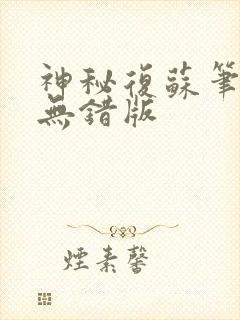 神秘復蘇筆
無錯版
煙素馨